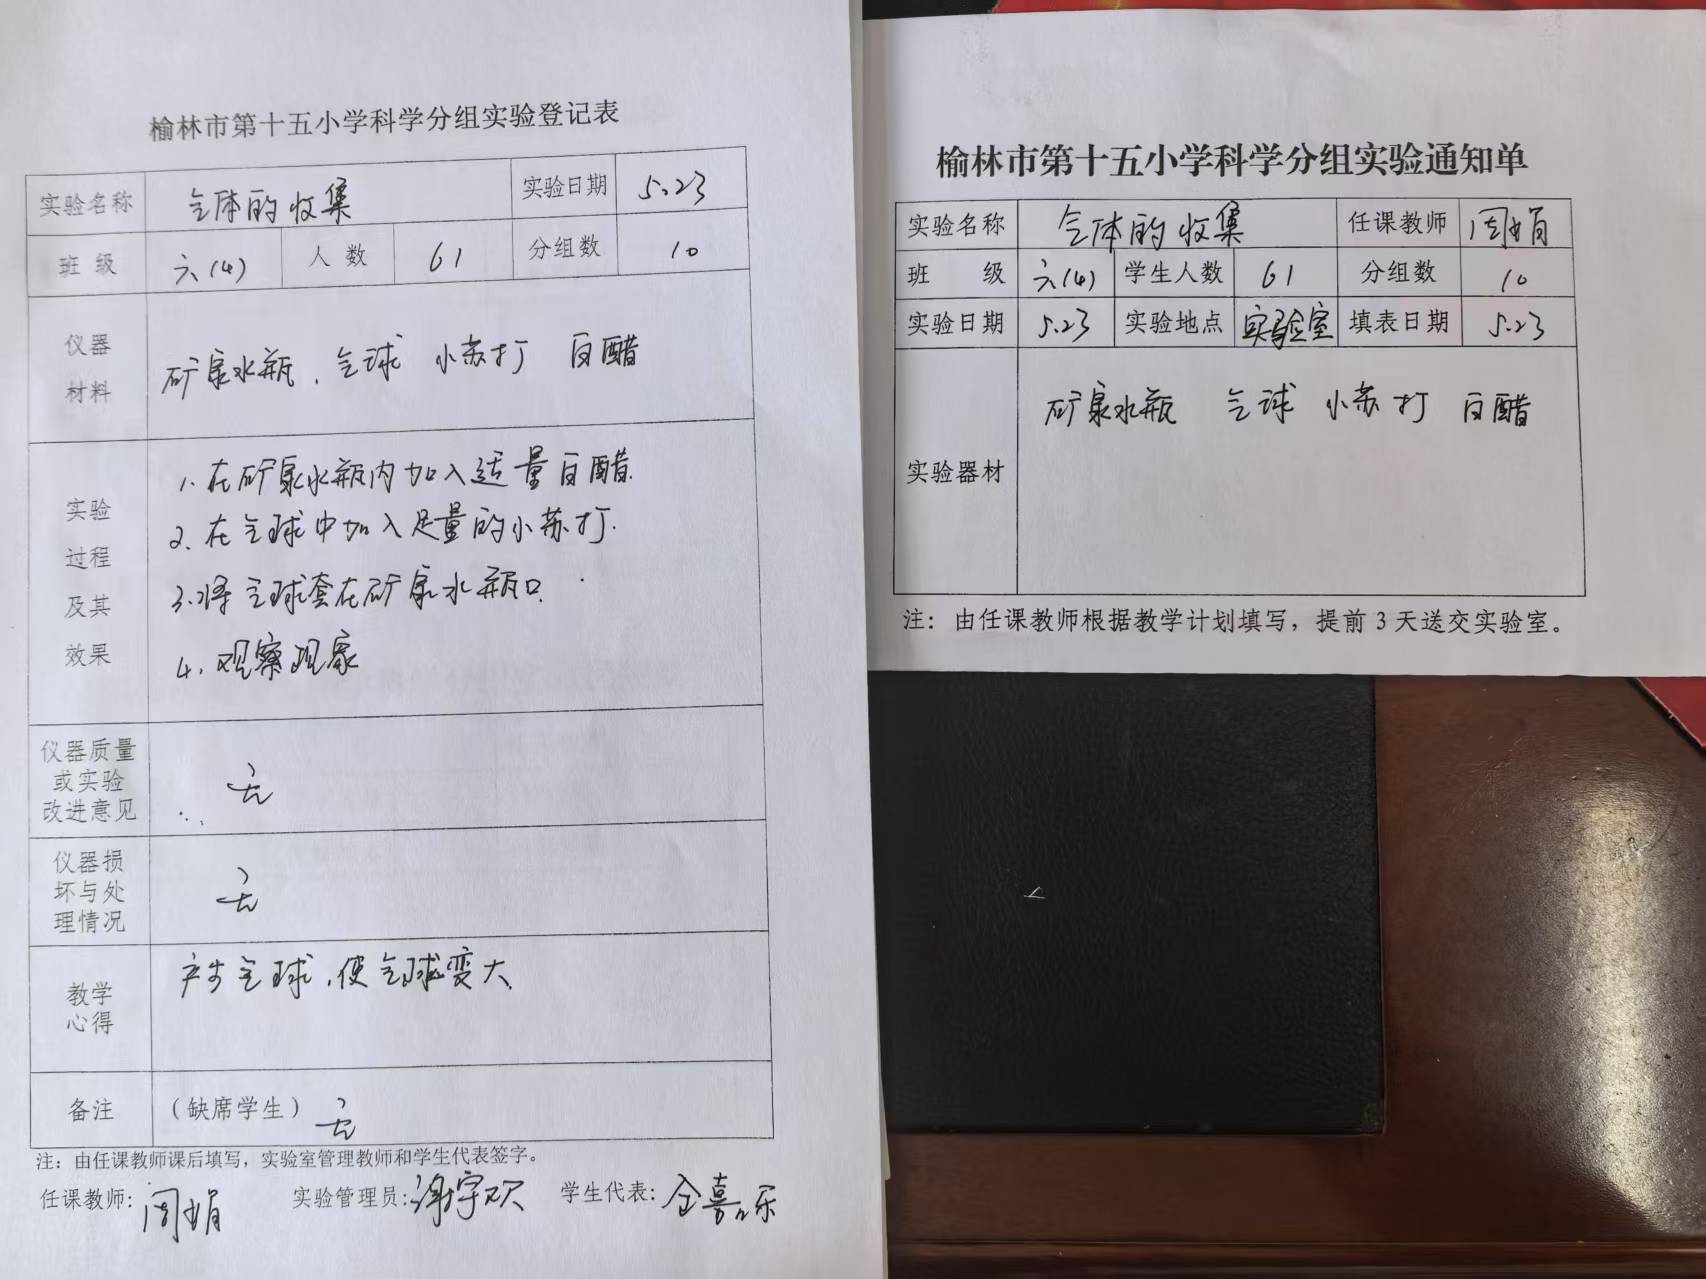 榆林市第十五小学科学分组实验登记表
实验名称 气体的收集 实验日期 5.23
班级 六(4) 人数 61 分组数 10
仪器
材料
矿泉水瓶、气球 小苏打 白醋
实验
过程
及其
效果
1.在矿泉水瓶内加入适量白醋.
2.在气球中加入足量的小苏打.
3.将气球套在矿泉水瓶口.
4.观察现象
仪器质量
或实验
改进意见
无
仪器损
坏与处
理情况
无
教学
心得
产生气球,使气球变大.
备注 (缺席学生) 无
注:由任课教师课后填写,实验室管理教师和学生代表签字。
任课教师:周娟 实验管理员:谢宇欢 学生代表:仝喜乐
榆林市第十五小学科学分组实验通知单
实验名称 气体的收集 任课教师 周娟
班级 六(4) 学生人数 61 分组数 10
实验日期 5.23 实验地点 实验室 填表日期 5.23
实验器材
矿泉水瓶 气球 小苏打 白醋
注:由任课教师根据教学计划填写,提前3天送交实验室。